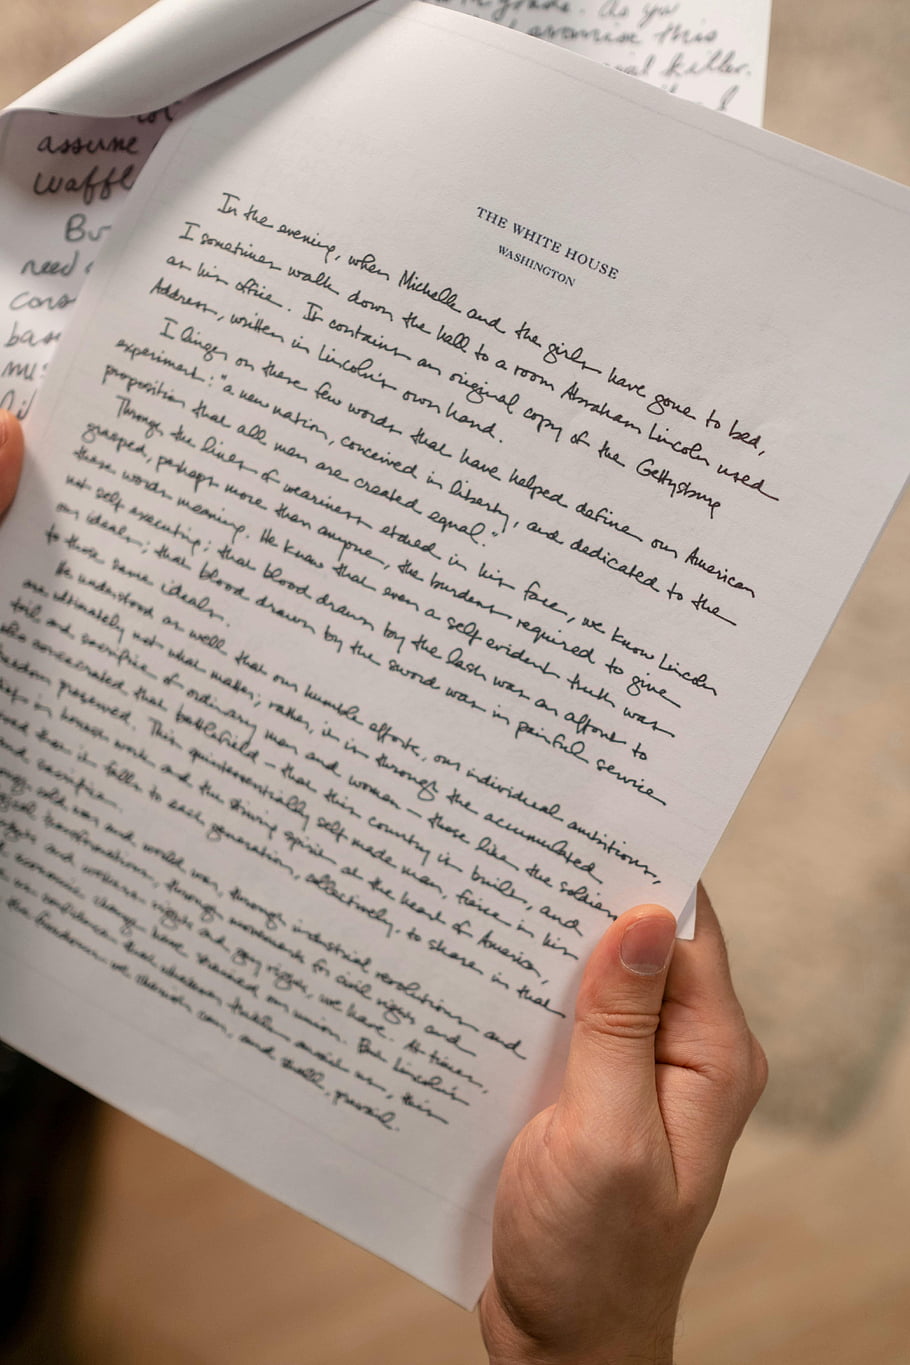 in grade. As you
promise this
killer.
assume
Waffl
Bu
need
cons
bas
THE WHITE HOUSE
WASHINGTON
In the evening, when Michelle and the girls have gone to bed,
I sometimes walk down the hall to a room Abraham Lincoln used
as his office. It contains an original copy of the Gettysburg
Address, written in Lincoln's own hand.
I linger on these few words that have helped define our American
experiment: "a new nation, conceived in liberty, and dedicated to the
proposition that all men are created equal."
Through the lines of weariness etched in his face, we know Lincoln
grasped, perhaps more than anyone, the burdens required to give
these words meaning. He knew that even a self evident truth was
not self executing; that blood drawn by the lash was an affront to
our ideals; that blood drawn by the sword was in painful service
to those same ideals.
He understood as well that our humble efforts, our individual ambitions,
are ultimately not what matter; rather, it is through the accumulated
toil and sacrifice of ordinary men and women – those like the soldiers
who consecrated that battlefield – that this country is built, and
freedom preserved. This quintessentially self made man, fierce in his
belief in honest work and the striving spirit at the heart of America,
that it falls to each generation, collectively, to share in that
and sacrifice.
cold war and world war, through industrial revolutions and
transformations, through movements for civil rights and
rights and workers rights and gay rights, we have. At times,
economic change have strained our union. But Lincoln's
us confidence that whatever trials await us, this
the freedom we cherish can, and shall, prevail.